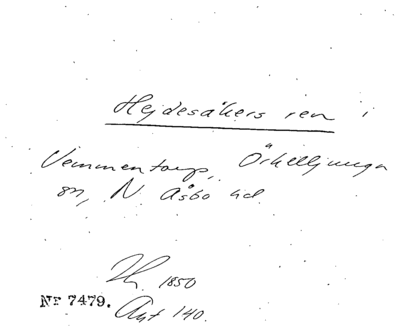 Hejdesåkers ren i
Vemmentorp, Örkelljunga
sn, N. Åsbo hd.
1850
Nr 7479. Ant 140.